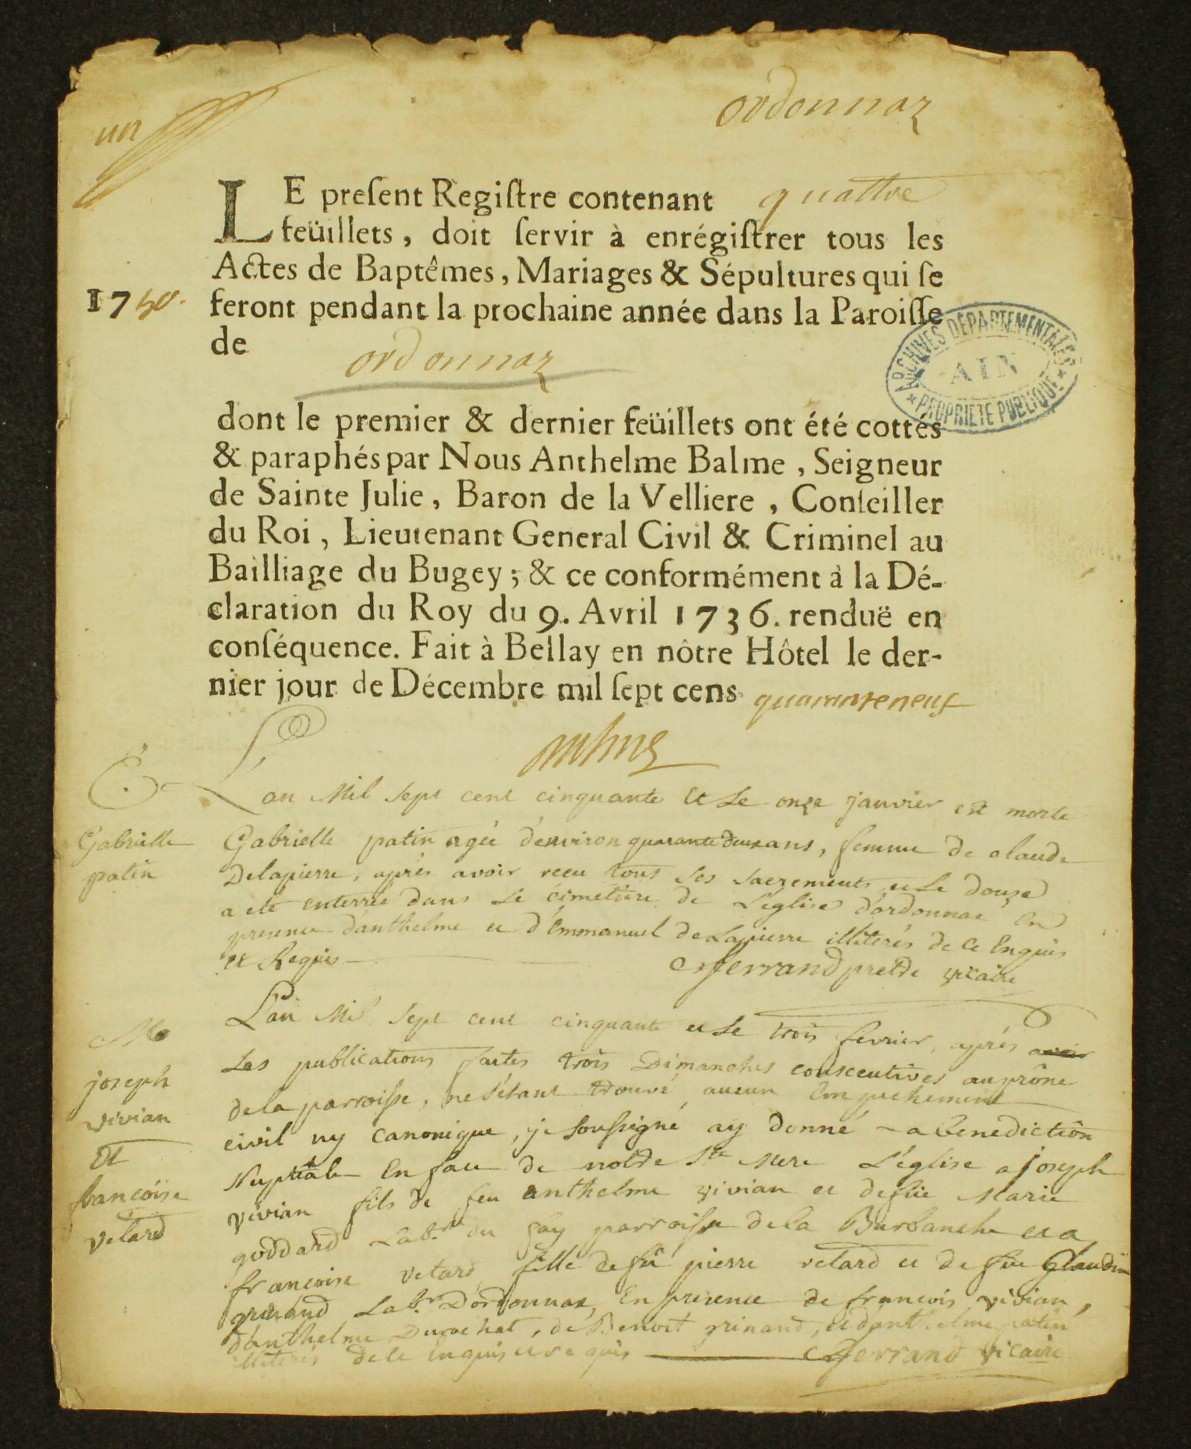 un
ordonnaz
LE preſent Regiſtre contenant quattre
feüillets, doit ſervir à enrégiſtrer tous les
Actes de Baptêmes, Mariages & Sépultures qui ſe
1750. feront pendant la prochaine année dans la Paroiſſe
de ordonnaz
ARCHIVES DÉPARTEMENTALES
AIN
PROPRIÉTÉ PUBLIQUE
dont le premier & dernier feüillets ont été cottés
& paraphés par Nous Anthelme Balme, Seigneur
de Sainte Julie, Baron de la Velliere, Conſeiller
du Roi, Lieutenant General Civil & Criminel au
Bailliage du Bugey; & ce conformément à la Dé-
claration du Roy du 9. Avril 1736. renduë en
conſéquence. Fait à Bellay en nôtre Hôtel le der-
nier jour de Décembre mil ſept cens quaranteneuf
L'an Mil sept cent cinquante et le onze janvier est morte
Gabrielle patin
Gabrielle patin agée d'environ quarante deux ans, femme de claude
Delapierre, après avoir receu tous ses sacrements, et le douze
a été enterrée dans le cimetiere de L'église d'ordonnaz en
presence d'anthelme et d'Emmanuel de Lapierre illiterés de ce Enquis
et Requis ferrand pretre vicaire
M
joseph
vivian
Et
francoise
vetard
L'an Mil sept cent cinquante et le trois fevrier, après avoir
Les publications faites trois Dimanches consecutives au prône
de la parroisse, ne s'étant trouvé aucun Empechement
civil ny canonique, je soussigné ay donné La benediction
Nuptiale En face de notre Ste Mere L'église a joseph
vivian fils de feu anthelme vivian et de füe Marie
goddard Labr. du fay parroisse de la Burbanche et a
francoise vetard fille de fü pierre vetard et de füe Claudine
grinand Labr. D'ordonnaz, En presence de francois vivian,
d'anthelme Durochat, de Benoit grinand, et d'anthelme patin
illiterés de ce enquis et requis ferrand vicaire